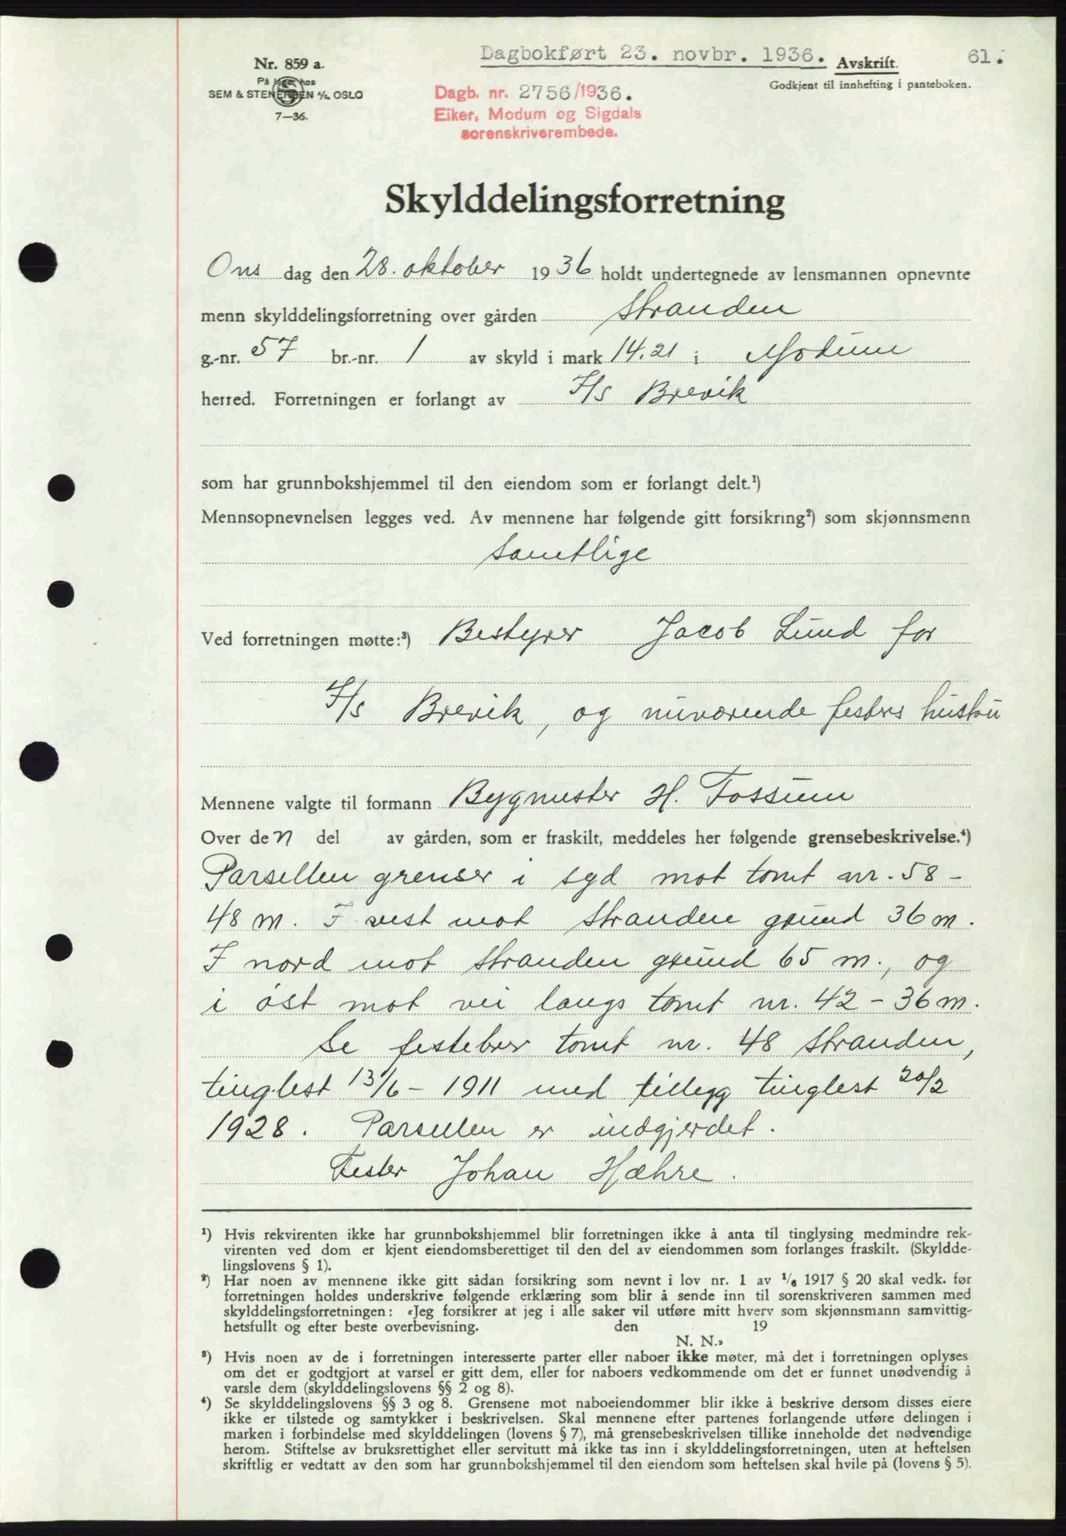 Nr. 859 a.
På lager hos
SEM & STENERSEN A/S, OSLO
7—36.
Dagbokført 23. novbr. 1936.
Avskrift.
61.
Godkjent til innhefting i panteboken.
Dagb. nr. 2756/1936.
Eiker, Modum og Sigdals
sorenskriverembede.
Skylddelingsforretning
Ons dag den 28. oktober 1936 holdt undertegnede av lensmannen opnevnte
menn skylddelingsforretning over gården Stranden
g.-nr. 57 br.-nr. 1 av skyld i mark 14.21 i Modum
herred. Forretningen er forlangt av I/S Brevik
som har grunnbokshjemmel til den eiendom som er forlangt delt.¹)
Mennsopnevnelsen legges ved. Av mennene har følgende gitt forsikring²) som skjønnsmenn
Samtlige
Ved forretningen møtte:³) Bestyrer Jacob Lund for
I/S Brevik, og nuværende festers hustru
Mennene valgte til formann Bygmester H. Fossum
Over den del av gården, som er fraskilt, meddeles her følgende grensebeskrivelse.⁴)
Parsellen grenser i syd mot tomt nr. 58 -
48 m. I vest mot Stranden grund 36 m.
I nord mot Stranden grund 65 m., og
i øst mot vei langs tomt nr. 42 - 36 m.
Se festebrev tomt nr. 48 Stranden,
tinglest 13/6 - 1911 med tillegg tinglest 20/2
1928. Parsellen er indgjerdet.
Fester Johan Hæhre.
¹) Hvis rekvirenten ikke har grunnbokshjemmel blir forretningen ikke å anta til tinglysing medmindre rek-
virenten ved dom er kjent eiendomsberettiget til den del av eiendommen som forlanges fraskilt. (Skyldde-
lingslovens § 1).
²) Har noen av mennene ikke gitt sådan forsikring som nevnt i lov nr. 1 av 1/6 1917 § 20 skal vedk. før
forretningen holdes underskrive følgende erklæring som blir å sende inn til sorenskriveren sammen med
skylddelingsforretningen: «Jeg forsikrer at jeg i alle saker vil utføre mitt hverv som skjønnsmann samvittig-
hetsfullt og efter beste overbevisning. den 19
N. N.»
³) Hvis noen av de i forretningen interesserte parter eller naboer ikke møter, må det i forretningen oplyses
om det er godtgjort at varsel er gitt dem, eller for naboers vedkommende om det er funnet unødvendig å
varsle dem (skylddelingslovens §§ 2 og 8).
⁴) Se skylddelingslovens §§ 3 og 8. Grensene mot naboeiendommer blir ikke å beskrive dersom disses eiere
ikke er tilstede og samtykker i beskrivelsen. Skal mennene efter partenes forlangende utføre delingen i
marken i forbindelse med skylddelingen (lovens § 7), må grensebeskrivelsen tillike inneholde det nødvendige
herom. Stiftelse av bruksrettighet eller servitutt må ikke tas inn i skylddelingsforretningen, uten at heftelsen
skriftlig er vedtatt av den som har grunnbokshjemmel til den eiendom som heftelsen skal hvile på (lovens § 5).